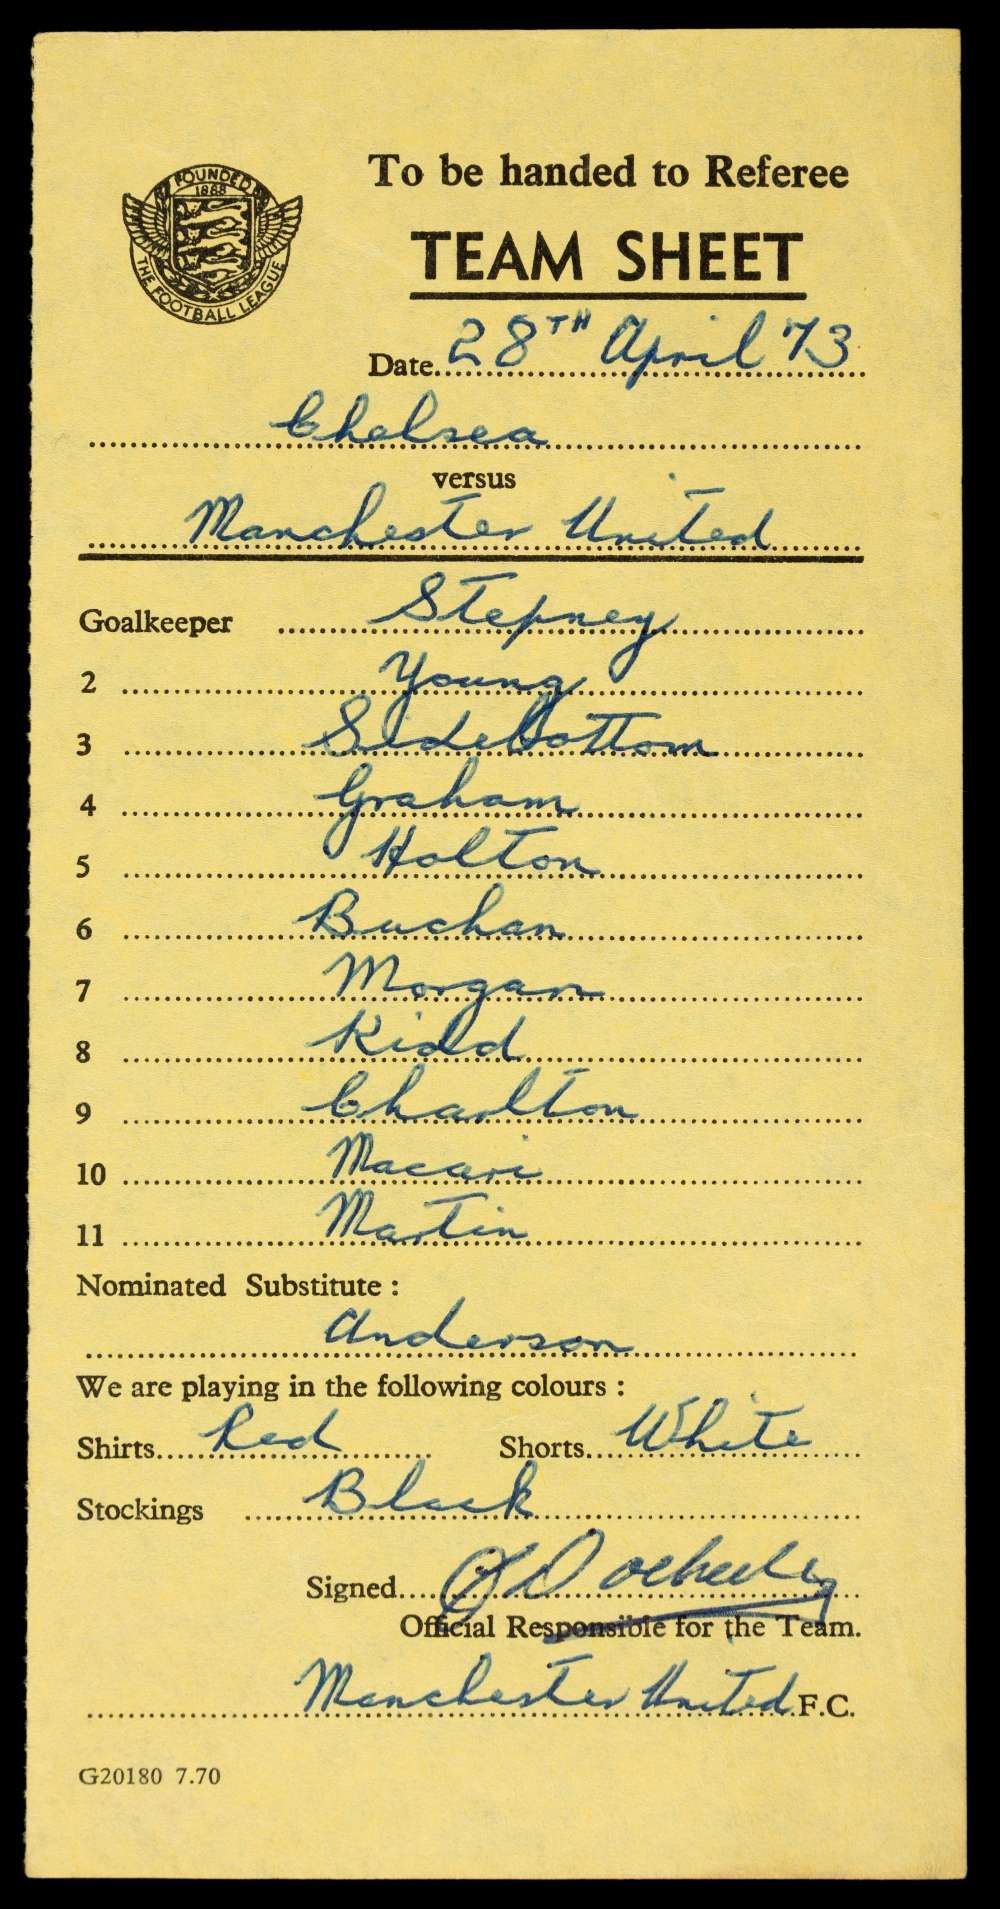 FOUNDED
1888
THE FOOTBALL LEAGUE
To be handed to Referee
TEAM SHEET
Date 28TH April '73
Chelsea
versus
Manchester United
Goalkeeper Stepney
2 Young
3 SideBottom
4 Graham
5 Holton
6 Buchan
7 Morgan
8 Kidd
9 Charlton
10 Macari
11 Martin
Nominated Substitute :
Anderson
We are playing in the following colours :
Shirts Red Shorts White
Stockings Black
Signed T Docherty
Official Responsible for the Team.
Manchester United F.C.
G20180 7.70